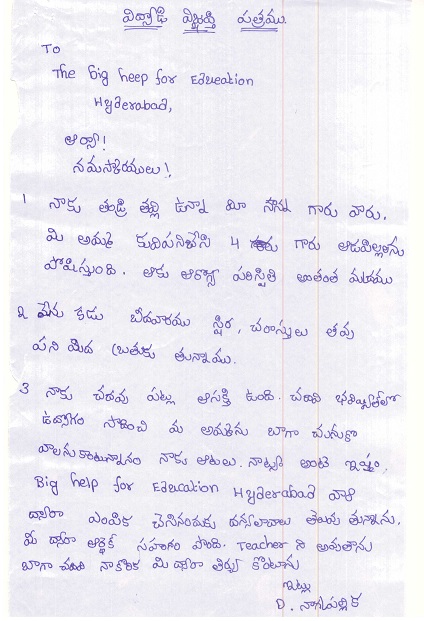 విద్యార్థి విజ్ఞప్తి పత్రము.
TO
The big heep for Education
Hyderabad,
ఆర్యా!
నమస్కారములు!,
1 నాకు తండ్రి తల్లి ఉన్నా మా నాన్న గారు వారు.
మి అమ్మ కూలిపనిచేసి 4 గారు ఆడపిల్లలను
పోషిస్తుంది. ఆరోగ్య పరిస్థితి అంతంత
2 మేము కడు బీదవారము స్థిర, చరాస్తులు లేవు
పని మీద బ్రతుకు తున్నాము.
3 నాకు చదువు పట్ల ఆసక్తి ఉంది. చదివి భవిష్యత్‌లో
ఉద్యోగం సాధించి మ అమ్మను బాగా చుసుకో
వాలనుకొంటున్నాను నాకు ఆటలు. నాట్యం అంటే ఇష్టం.
Big help for Education Hyderabad వారి
ద్వారా ఎంపిక చేసినందుకు ధన్యవాదాలు తెలుపు తున్నాను.
మీ ద్వారా ఆర్థిక సహాయం పొంది. Teacher ని అవుతాను
బాగా చదివి నా కోరిక మి ద్వారా తీర్చు కొంటాను
ఇట్లు
D. నాగమల్లిక